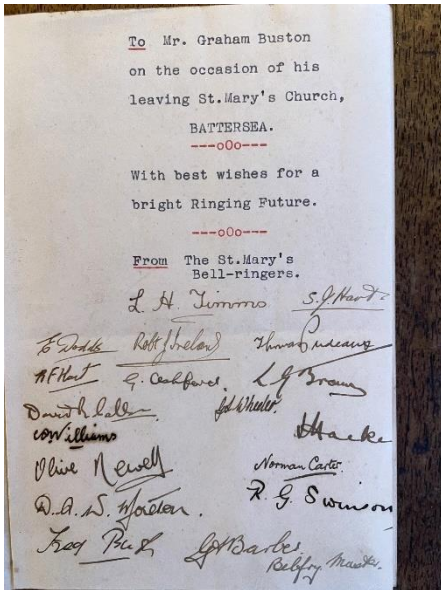 To Mr. Graham Buston
on the occasion of his
leaving St.Mary's Church,
BATTERSEA.
---oOo---
With best wishes for a
bright Ringing Future.
---oOo---
From The St.Mary's
Bell-ringers.
L. H. Timms S. J. Hart
E Dodds Robt J Ireland Thomas
A F Hart G. Cashford L G Brown
David R. J d Wheeler.
C O Williams Hacke
Olive Newell Norman Carter.
D. A. W. R. G. Swinson
Fred Bush G H Barber
Belfry Master.